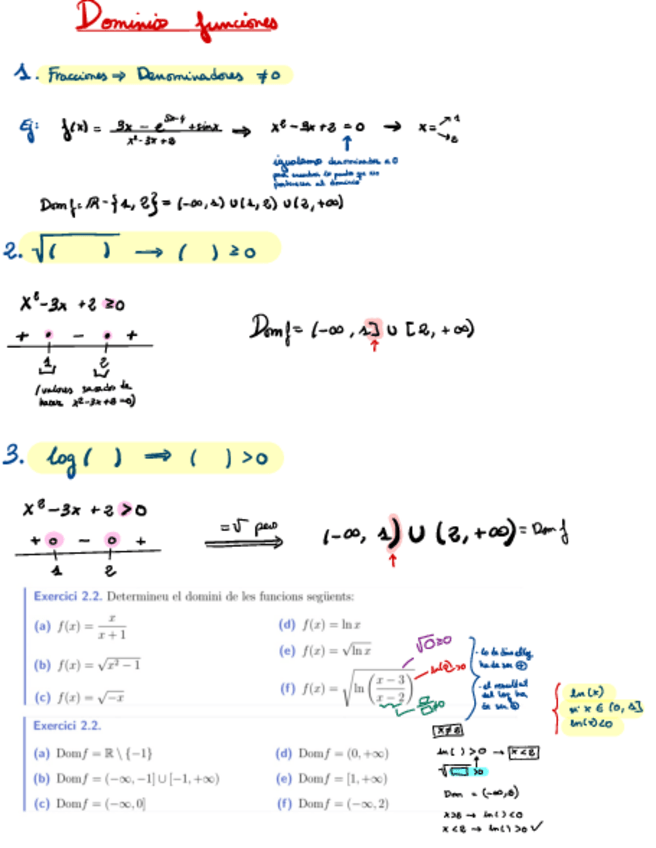 Dominio funciones
1. Fracciones ⇒ Denominadores ≠0
Ej: f(x) = (3x - e^(5x-4) + sinx)/(x²-3x+2) ⇒ x²-3x+2=0 → x= 1, 2
igualamos denominador a 0
para encontrar los puntos que no
pertenecen al dominio
Dom f = ℝ - {1, 2} = (-∞, 1) ∪ (1, 2) ∪ (2, +∞)
2. √( ) → ( ) ≥ 0
x²-3x+2 ≥0
+ • - • +
1 2
Dom f = (-∞, 1] ∪ [2, +∞)
(valores sacados de
hacer x²-3x+2=0)
3. log( ) ⇒ ( ) >0
x²-3x+2 >0
+ o - o +
1 2
=√ pero
(-∞, 1) ∪ (2, +∞) = Dom f
Exercici 2.2. Determineu el domini de les funcions següents:
(a) f(x) = x/(x+1)
(b) f(x) = √(x²-1)
(c) f(x) = √(-x)
(d) f(x) = ln x
(e) f(x) = √(ln x)
(f) f(x) = √(ln((x-3)/(x-2)))
√○≥0
ha de ser ⊕
- el resultat
del log ha
de ser ⊕
ln(x)
si x ∈ (0, 1]
ln(x)<0
Exercici 2.2.
(a) Dom f = ℝ \ {-1}
(b) Dom f = (-∞, -1] ∪ [-1, +∞)
(c) Dom f = (-∞, 0]
(d) Dom f = (0, +∞)
(e) Dom f = [1, +∞)
(f) Dom f = (-∞, 2)
x≠2
ln( ) >0 → x<2
Dom = (-∞, 2)
x>2 → ln( ) <0
x<2 → ln( ) >0 ✓